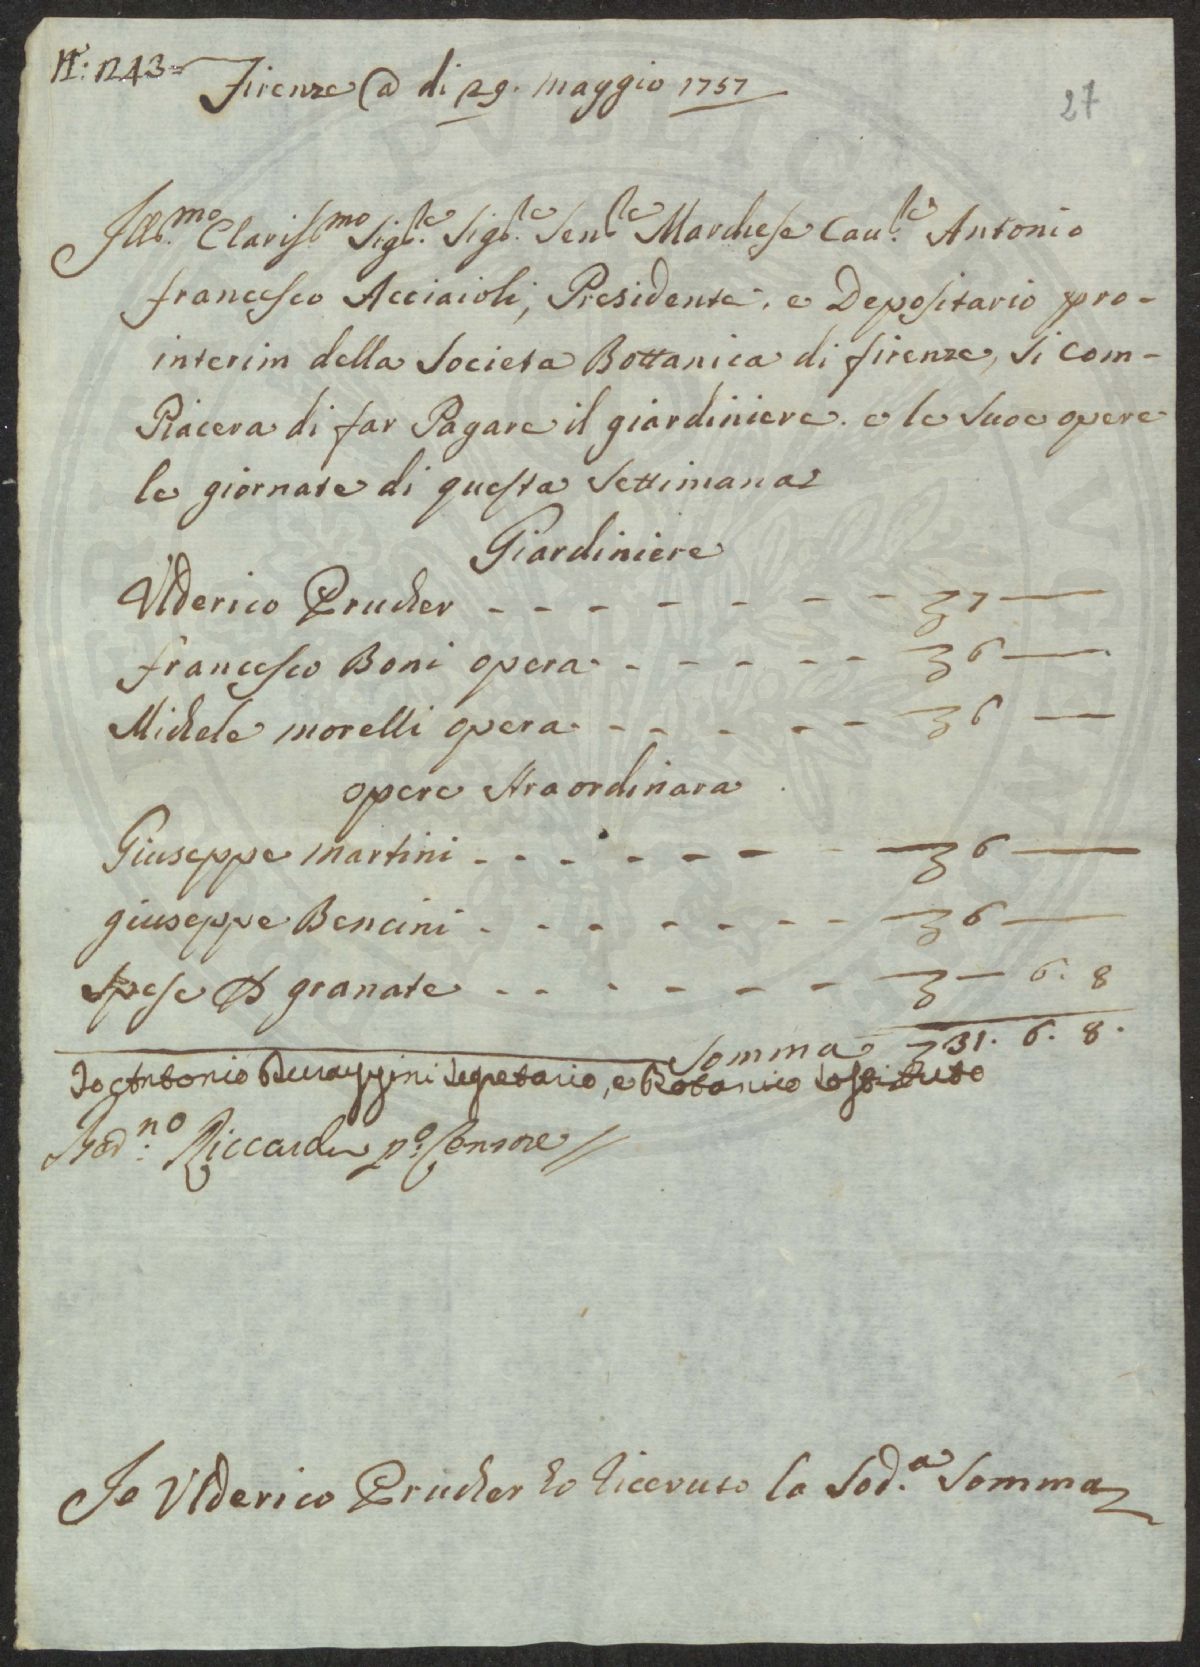 N.: 1243=
Firenze a di 29. maggio 1757
27
Ill.mo Clariss.mo Sig.re Sig.re Sen.re Marchese Cau.re Antonio
francesco Acciaioli, Presidente. e Depositario pro-
interim della Societa Bottanica di firenze, si com-
Piacera di far Pagare il giardiniere. e le Suoe opere
le giornate di questa Settimana
Giardiniere
Vlderico Prucher - - - - - - - - £ 7 —
francesco Boni opera - - - - - £ 6 —
Michele morelli opera - - - - - £ 6 —
opere straordinara
Giuseppe martini - - - - - - - £ 6 —
giuseppe Bencini - - - - - - - £ 6 —
spese di granate - - - - - - £ — 6. 8
Somma £ 31. 6. 8.
Io Antonio Durazzini Segretario, e Botanico Sostituto
Bern.no Riccardi p.o Censore
Io Vlderico Prucher ho Riceuuto la Sod.a Somma
PVBLIC